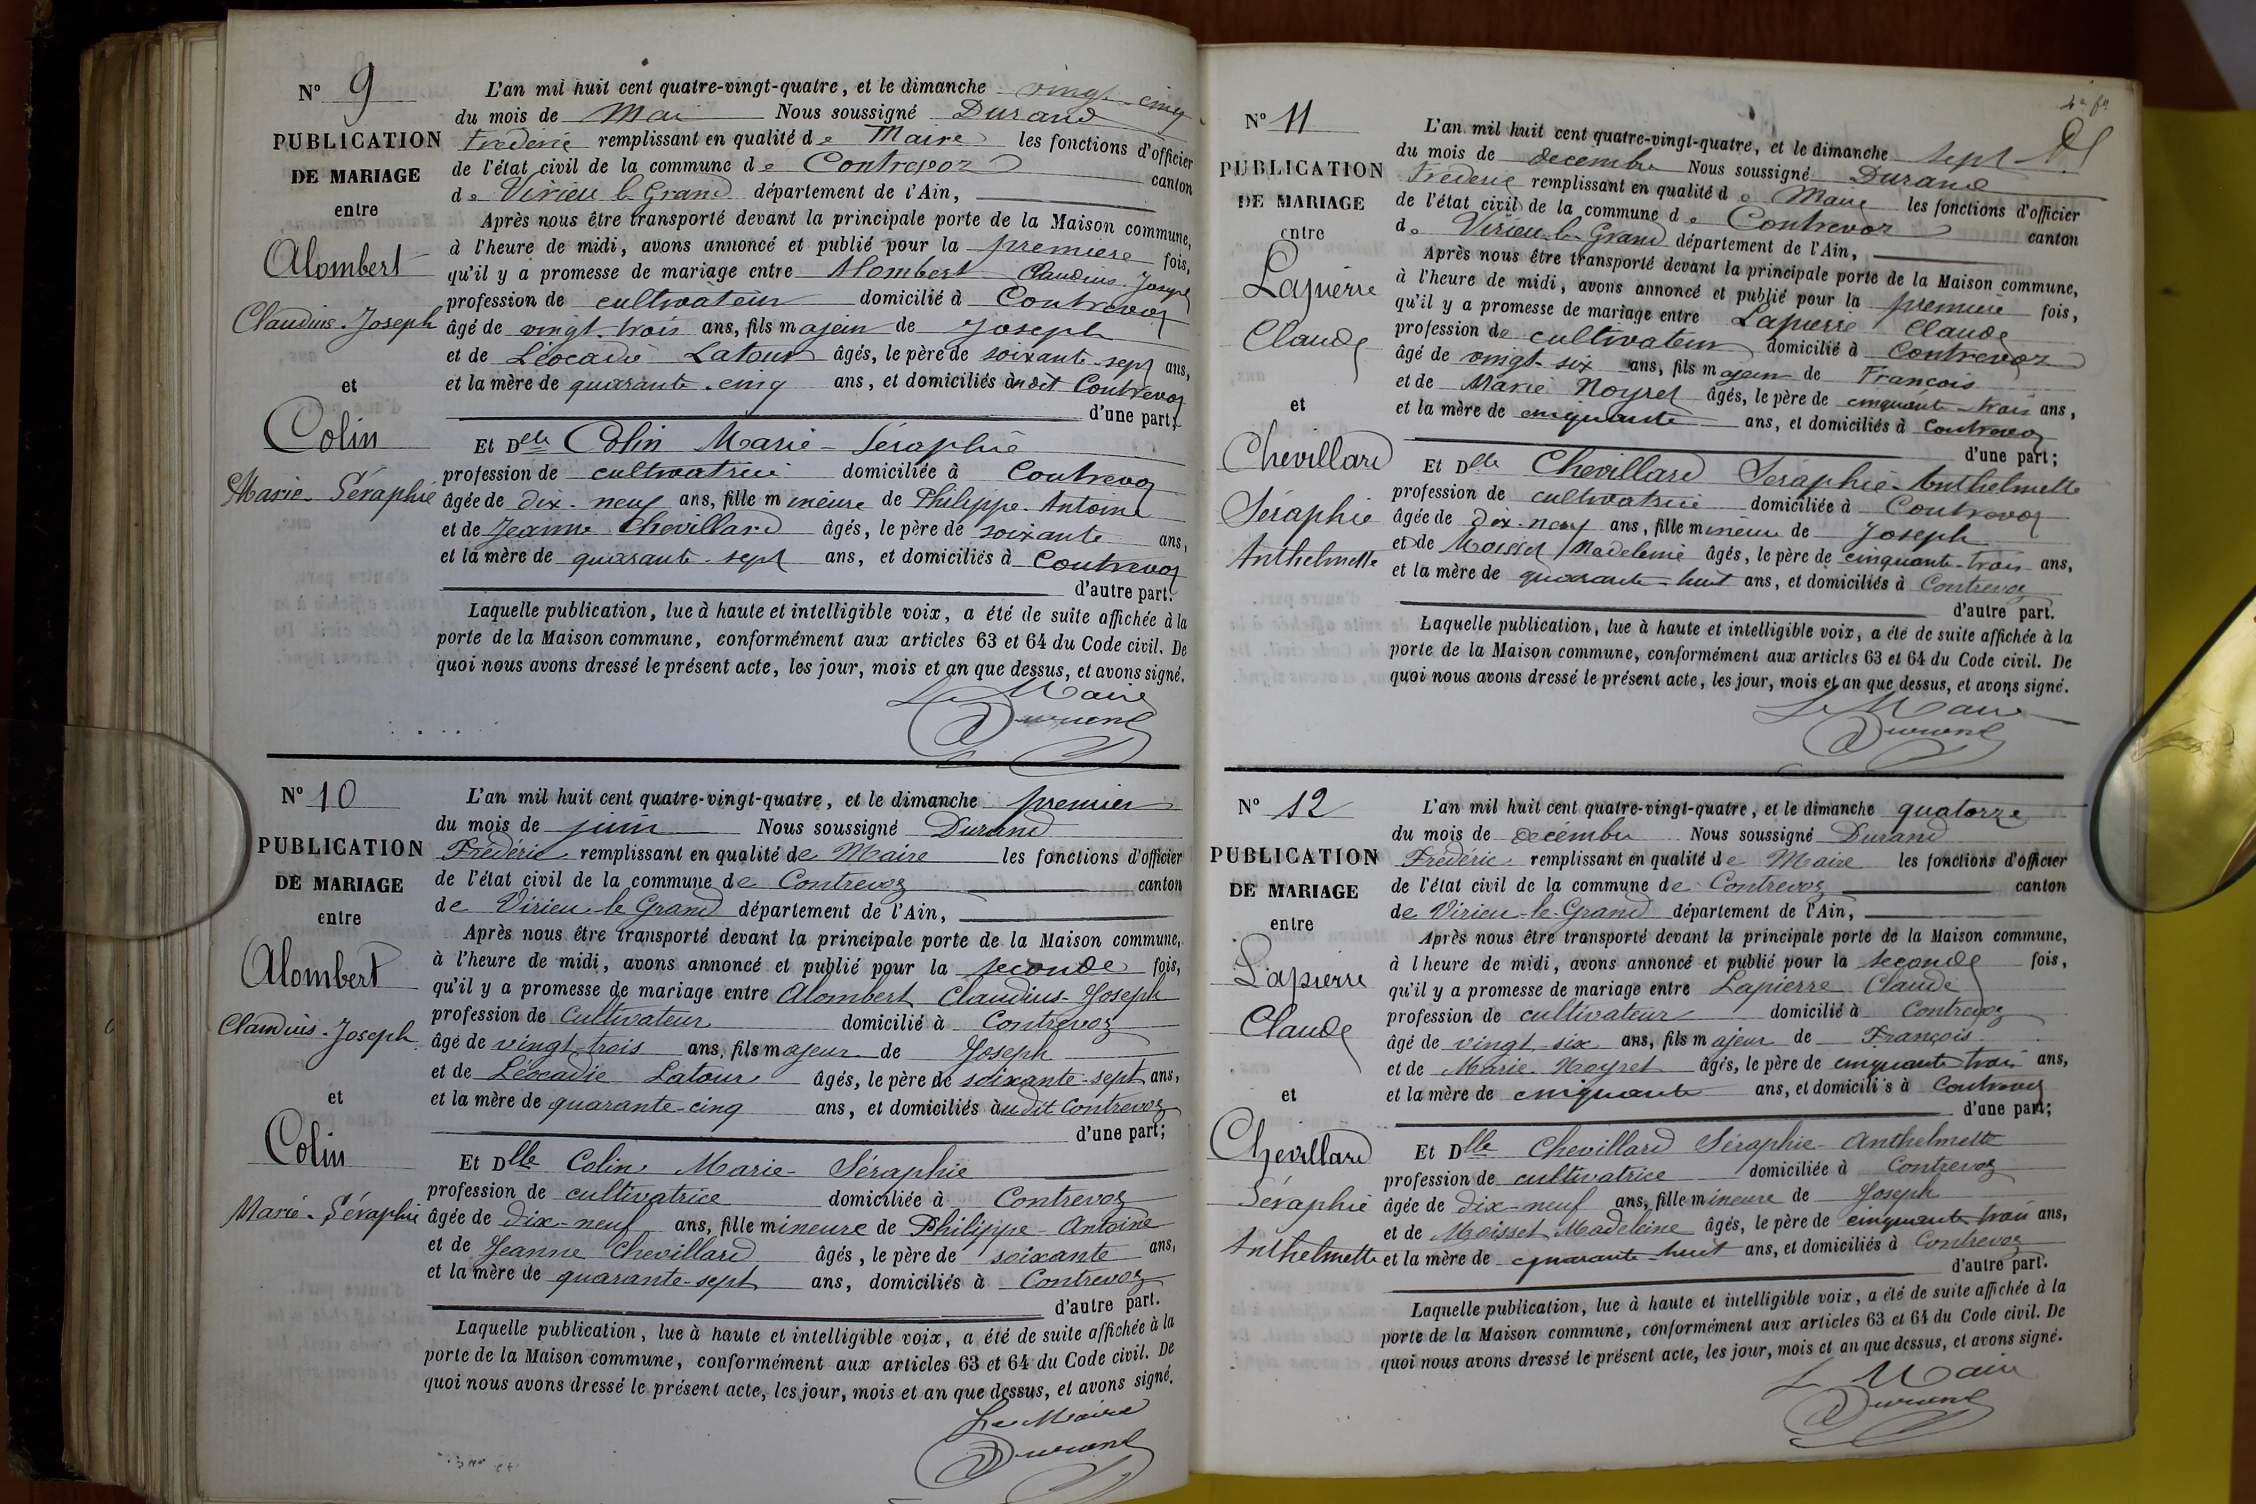 N° 9
PUBLICATION
DE MARIAGE
entre
Alombert
Claudius-Joseph
et
Colin
Marie-Séraphie
L'an mil huit cent quatre-vingt-quatre, et le dimanche vingt-cinq
du mois de Mai Nous soussigné Durand
Fréderic remplissant en qualité de Maire les fonctions d'officier
de l'état civil de la commune de Contrevoz canton
de Virieu le Grand département de l'Ain,
Après nous être transporté devant la principale porte de la Maison commune,
à l'heure de midi, avons annoncé et publié pour la premiere fois,
qu'il y a promesse de mariage entre Alombert Claudius-Joseph
profession de cultivateur domicilié à Contrevoz
âgé de vingt-trois ans, fils majeur de Joseph
et de Léocadie Latour âgés, le père de soixante-sept ans,
et la mère de quarante-cinq ans, et domiciliés à udit Contrevoz
d'une part;
Et Delle Colin Marie-Séraphie
profession de cultivatrice domiciliée à Contrevoz
âgée de dix-neuf ans, fille mineure de Philippe-Antoine
et de Jeanne Chevillard âgés, le père de soixante ans,
et la mère de quarante-sept ans, et domiciliés à Contrevoz
d'autre part.
Laquelle publication, lue à haute et intelligible voix, a été de suite affichée à la
porte de la Maison commune, conformément aux articles 63 et 64 du Code civil. De
quoi nous avons dressé le présent acte, les jour, mois et an que dessus, et avons signé.
Le Maire
Durand
N° 10
PUBLICATION
DE MARIAGE
entre
Alombert
Claudius-Joseph
et
Colin
Marie-Séraphie
L'an mil huit cent quatre-vingt-quatre, et le dimanche premier
du mois de juin Nous soussigné Durand
Frédéric remplissant en qualité de Maire les fonctions d'officier
de l'état civil de la commune de Contrevoz canton
de Virieu-le-Grand département de l'Ain,
Après nous être transporté devant la principale porte de la Maison commune,
à l'heure de midi, avons annoncé et publié pour la seconde fois,
qu'il y a promesse de mariage entre Alombert Claudius-Joseph
profession de Cultivateur domicilié à Contrevoz
âgé de vingt-trois ans, fils majeur de Joseph
et de Léocadie Latour âgés, le père de soixante-sept ans,
et la mère de quarante-cinq ans, et domiciliés à udit Contrevoz
d'une part;
Et Dlle Colin Marie-Séraphie
profession de cultivatrice domiciliée à Contrevoz
âgée de dix-neuf ans, fille mineure de Philippe-Antoine
et de Jeanne Chevillard âgés, le père de soixante ans,
et la mère de quarante-sept ans, domiciliés à Contrevoz
d'autre part.
Laquelle publication, lue à haute et intelligible voix, a été de suite affichée à la
porte de la Maison commune, conformément aux articles 63 et 64 du Code civil. De
quoi nous avons dressé le présent acte, les jour, mois et an que dessus, et avons signé.
Le Maire
Durand
N° 11
PUBLICATION
DE MARIAGE
entre
Lapierre
Claude
et
Chevillard
Séraphie
Anthelmette
L'an mil huit cent quatre-vingt-quatre, et le dimanche sept
du mois de decembre Nous soussigné Durand
Fréderic remplissant en qualité de Maire les fonctions d'officier
de l'état civil de la commune de Contrevoz canton
de Virieu-le-Grand département de l'Ain,
Après nous être transporté devant la principale porte de la Maison commune,
à l'heure de midi, avons annoncé et publié pour la premiere fois,
qu'il y a promesse de mariage entre Lapierre Claude
profession de cultivateur domicilié à Contrevoz
âgé de vingt-six ans, fils majeur de François
et de Marie Noyret âgés, le père de cinquante-trois ans,
et la mère de cinquante ans, et domiciliés à Contrevoz
d'une part;
Et Dlle Chevillard Séraphie-Anthelmette
profession de cultivatrice domiciliée à Contrevoz
âgée de dix-neuf ans, fille mineure de Joseph
et de Moisset Madeleine âgés, le père de cinquante-trois ans,
et la mère de quarante-huit ans, et domiciliés à Contrevoz
d'autre part.
Laquelle publication, lue à haute et intelligible voix, a été de suite affichée à la
porte de la Maison commune, conformément aux articles 63 et 64 du Code civil. De
quoi nous avons dressé le présent acte, les jour, mois et an que dessus, et avons signé.
Le Maire
Durand
N° 12
PUBLICATION
DE MARIAGE
entre
Lapierre
Claude
et
Chevillard
Séraphie
Anthelmette
L'an mil huit cent quatre-vingt-quatre, et le dimanche quatorze
du mois de décembre Nous soussigné Durand
Frédéric remplissant en qualité de Maire les fonctions d'officier
de l'état civil de la commune de Contrevoz canton
de Virieu-le-Grand département de l'Ain,
Après nous être transporté devant la principale porte de la Maison commune,
à l'heure de midi, avons annoncé et publié pour la seconde fois,
qu'il y a promesse de mariage entre Lapierre Claude
profession de cultivateur domicilié à Contrevoz
âgé de vingt-six ans, fils majeur de François
et de Marie Noyret âgés, le père de cinquante trois ans,
et la mère de cinquante ans, et domiciliés à Contrevoz
d'une part;
Et Dlle Chevillard Séraphie-Anthelmette
profession de cultivatrice domiciliée à Contrevoz
âgée de dix-neuf ans, fille mineure de Joseph
et de Moisset Madeleine âgés, le père de cinquante trois ans,
et la mère de quarante-huit ans, et domiciliés à Contrevoz
d'autre part.
Laquelle publication, lue à haute et intelligible voix, a été de suite affichée à la
porte de la Maison commune, conformément aux articles 63 et 64 du Code civil. De
quoi nous avons dressé le présent acte, les jour, mois et an que dessus, et avons signé.
Le Maire
Durand